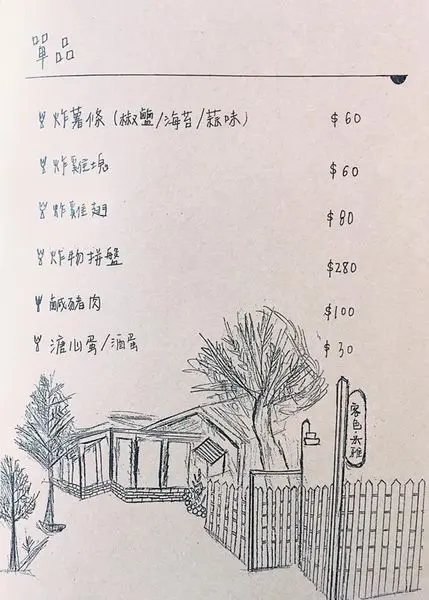 單品
炸薯條（椒鹽/海苔/蒜味） $60
炸雞塊 $60
炸雞翅 $80
炸物拼盤 $280
鹹豬肉 $100
溏心蛋/酒蛋 $30
客色禾雅